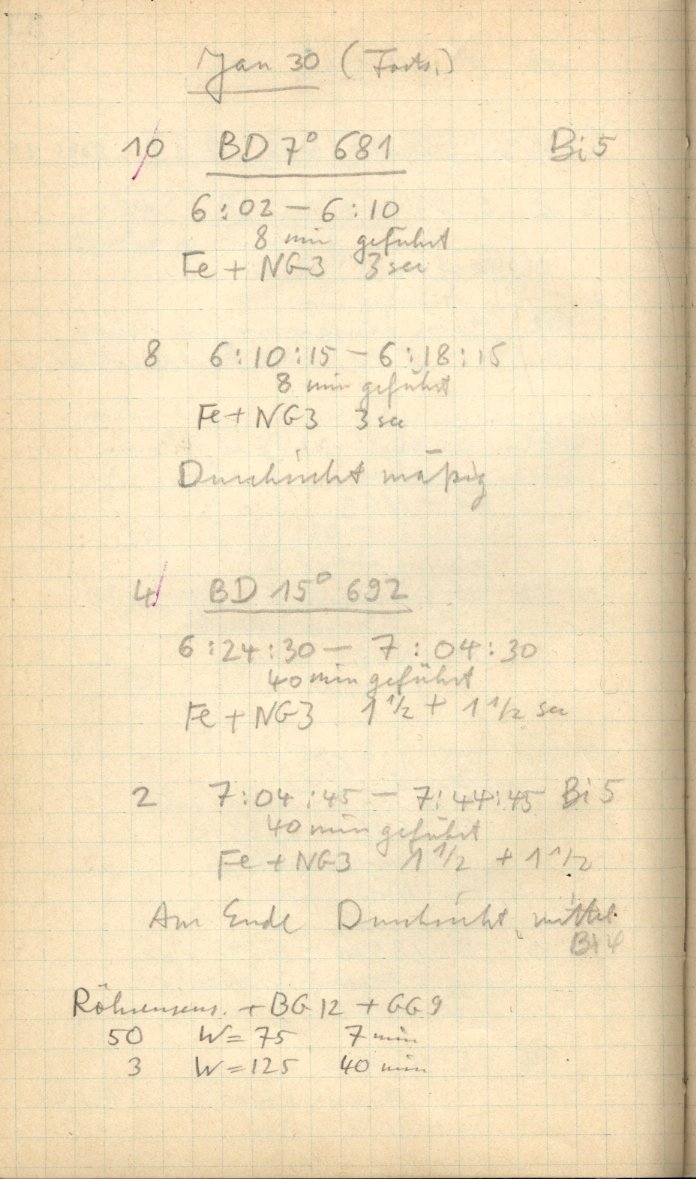 Jan 30 (Forts.)
10 BD 7° 681 Bi 5
6:02 – 6:10
8 min geführt
Fe + NG3 3 sec
8 6:10:15 – 6:18:15
8 min geführt
Fe + NG3 3 sec
Durchsicht mäßig
4 BD 15° 692
6:24:30 – 7:04:30
40 min geführt
Fe + NG3 1 1/2 + 1 1/2 sec
2 7:04:45 – 7:44:45 Bi 5
40 min geführt
Fe + NG3 1 1/2 + 1 1/2
Am Ende Durchsicht mittel
Bi 4
Röhrensens. + BG 12 + GG 9
50 W = 75 7 min
3 W = 125 40 min